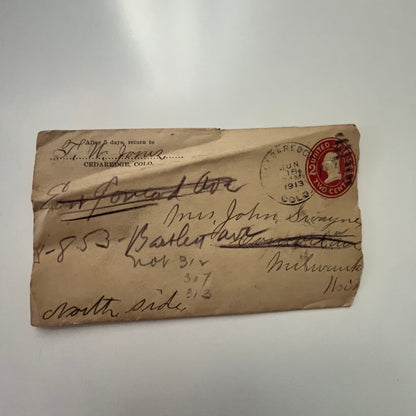 After 5 days, return to
T. W. Jones
CEDAREDGE, COLO.
CEDAREDGE
JUN
1913
COLO.
UNITED STATES
TWO CENTS
Ave
Mrs. John Swayne
853- Bartlett Ave
Milwauk
Wis
not 312
307
313
North Side